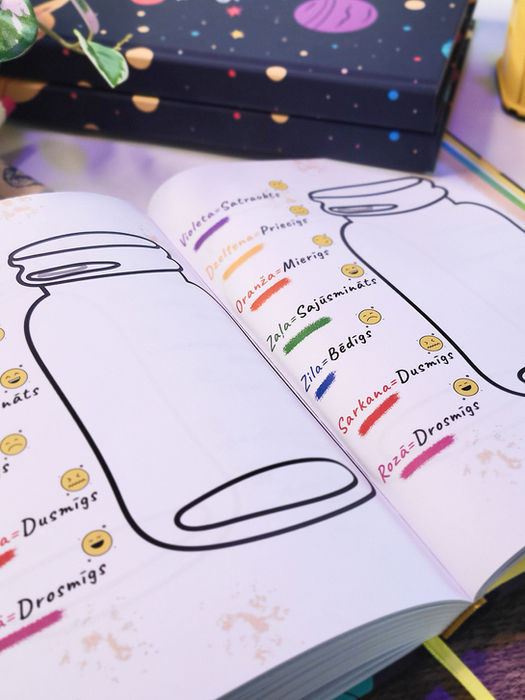 nāts
gs
Dusmīgs
ā=Drosmīgs
Violeta=Satraukts
Dzeltena=Priecīgs
Oranža=Mierīgs
Zaļa=Sajūsmināts
Zila=Bēdīgs
Sarkana=Dusmīgs
Rozā=Drosmīgs